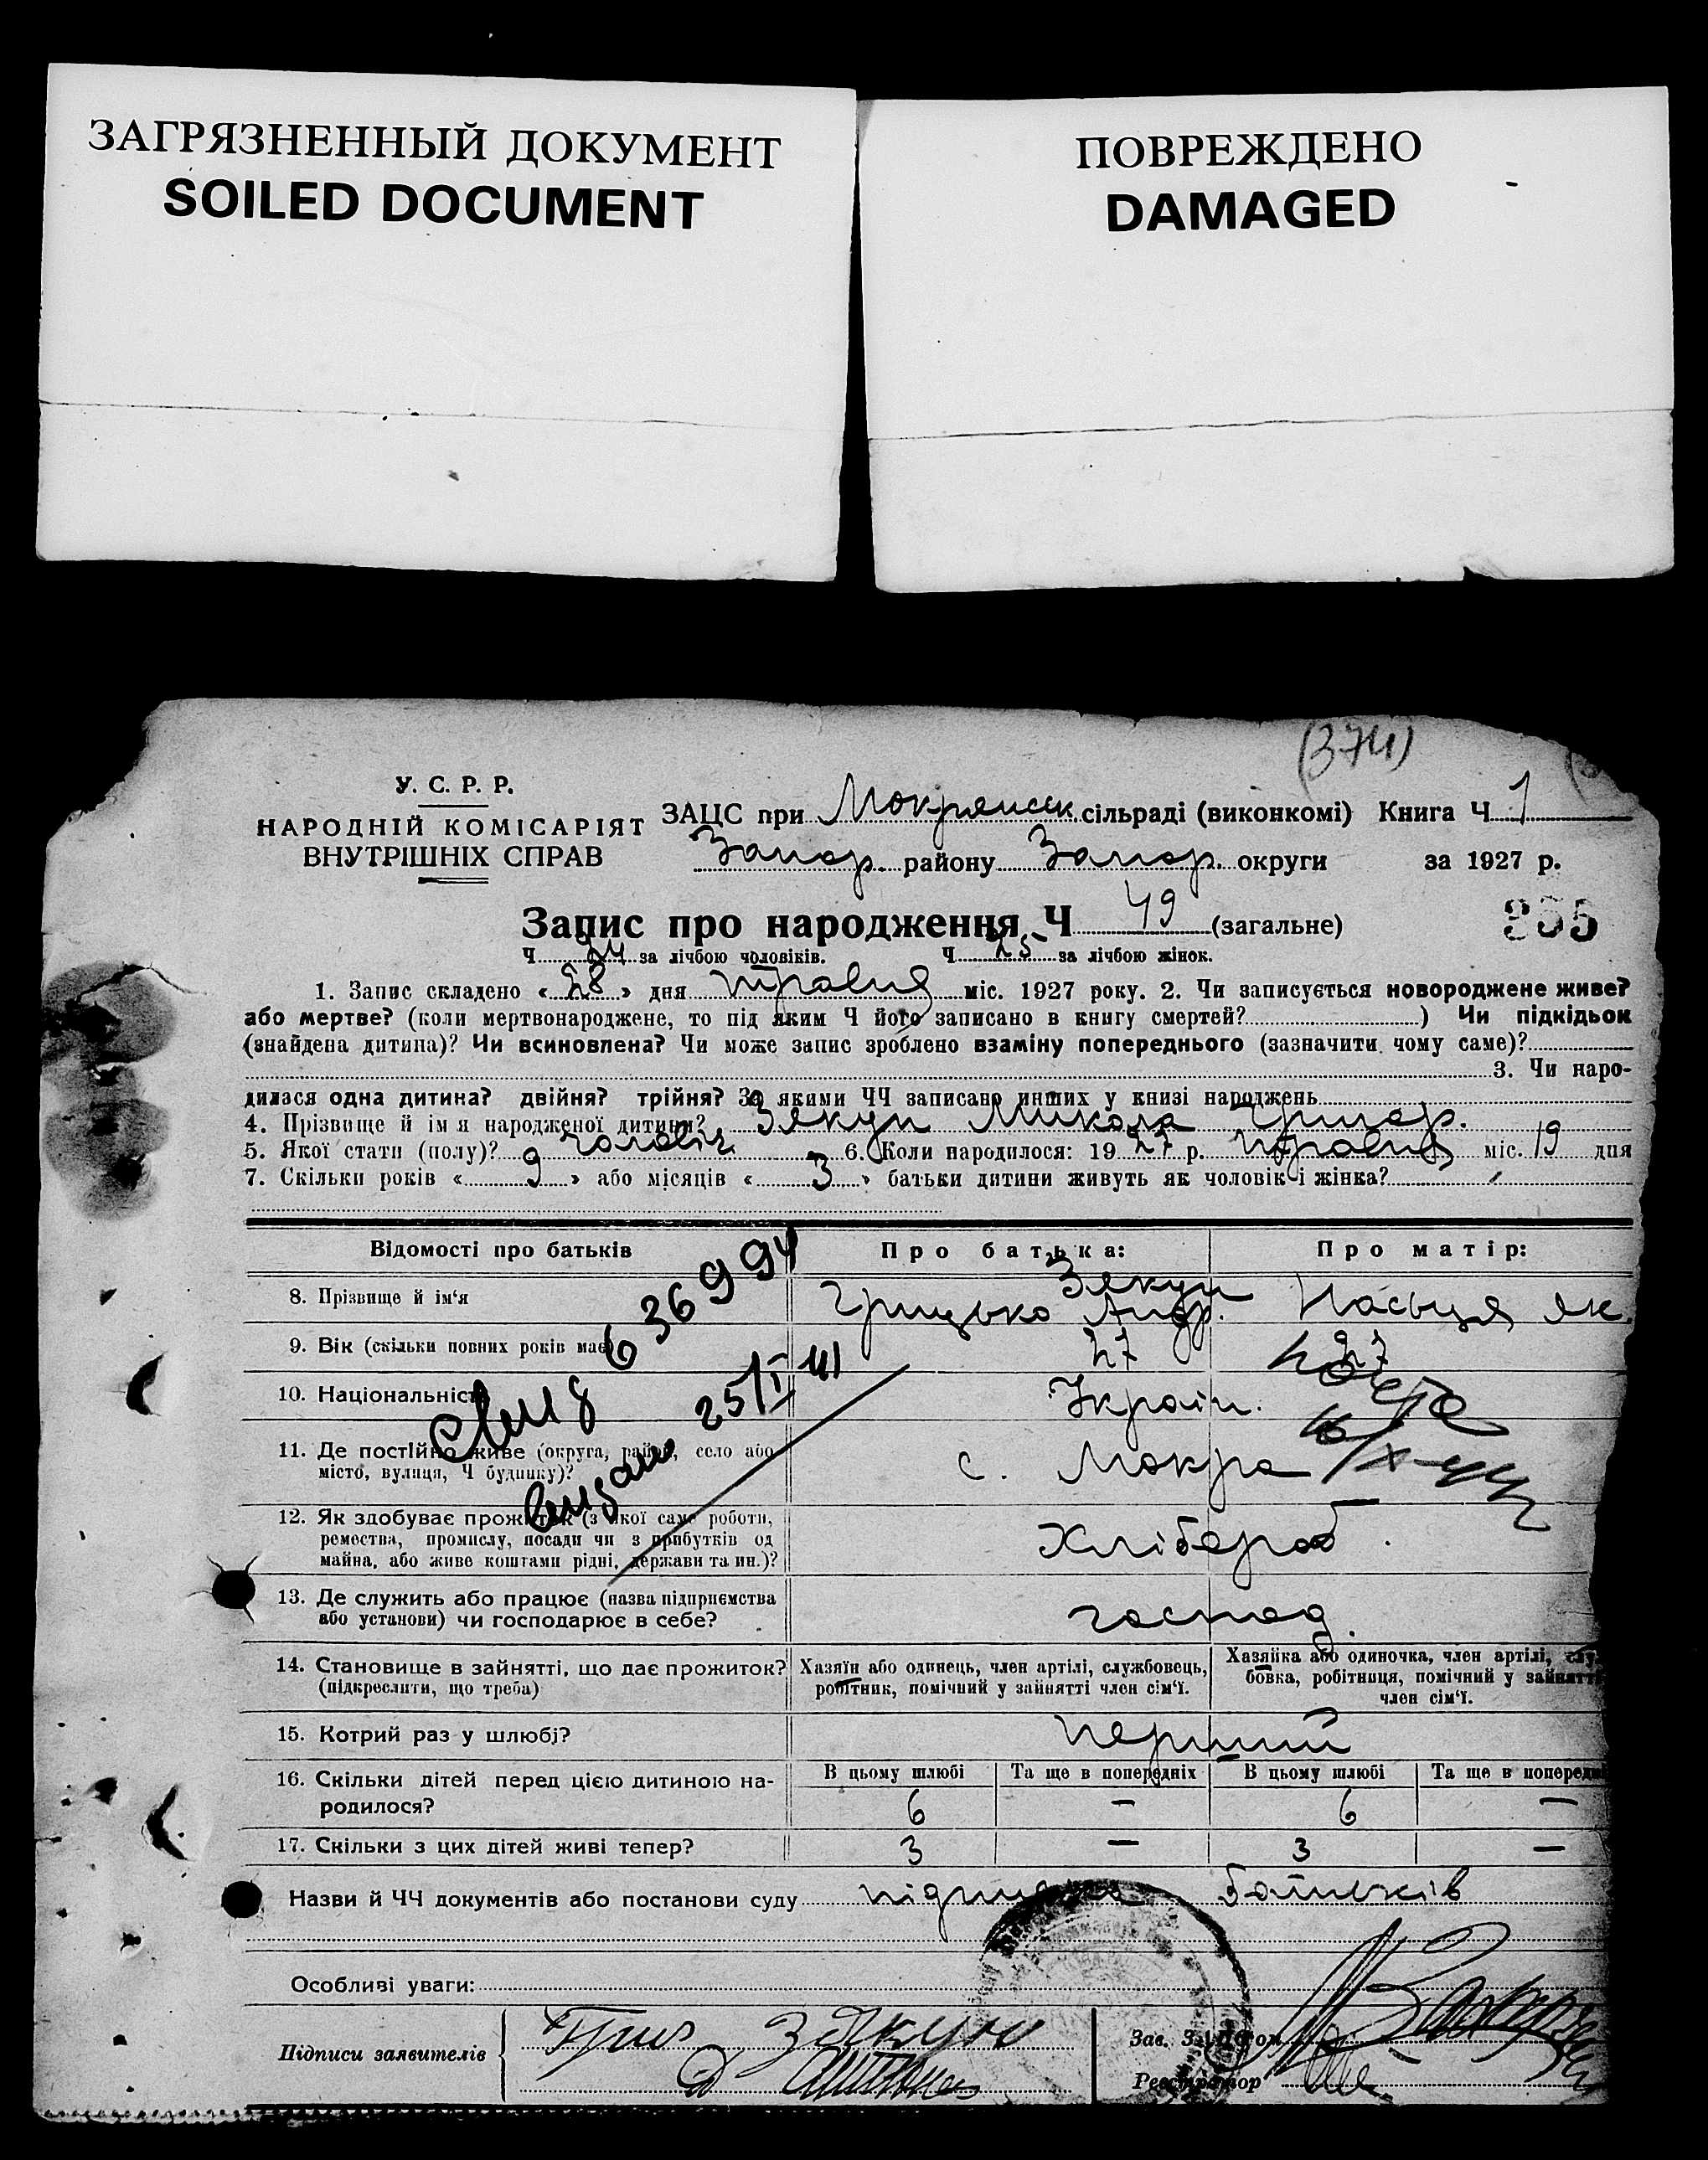 ЗАГРЯЗНЕННЫЙ ДОКУМЕНТ
SOILED DOCUMENT
ПОВРЕЖДЕНО
DAMAGED
(374)
У. С. Р. Р.
НАРОДНІЙ КОМІСАРІЯТ
ВНУТРІШНІХ СПРАВ
ЗАЦС при Мокрянськ сільраді (виконкомі) Книга Ч 1
Запор. району Запор. округи за 1927 р.
Запис про народження Ч 49 (загальне)
355
Ч 24 за лічбою чоловіків. Ч 25 за лічбою жінок.
1. Запис складено «28» дня травня міс. 1927 року. 2. Чи записується новороджене живе?
або мертве? (коли мертвонароджене, то під яким Ч його записано в книгу смертей?) Чи підкідьок
(знайдена дитина)? Чи всиновлена? Чи може запис зроблено взаміну попереднього (зазначити чому саме)?
3. Чи наро-
дилася одна дитина? двійня? трійня? За якими ЧЧ записано инших у книзі народжень
4. Прізвище й ім'я народженої дитини? Зякун Микола Григор.
5. Якої стати (полу)? чоловіч. 6. Коли народилося: 1927 р. травня міс. 19 дня
7. Скільки років «9» або місяців «3» батьки дитини живуть як чоловік і жінка?
Відомості про батьків Про батька: Про матір:
8. Прізвище й ім'я Зякун
Грицько Андр. Настя Як.
9. Вік (скільки повних років має) 27 27
10. Національність Україн.
11. Де постійно живе (округа, район, село або
місто, вулиця, Ч будинку)? с. Мокра
12. Як здобуває прожиток (з якої саме роботи,
ремества, промислу, посади чи з прибутків од
майна, або живе коштами рідні, держави та ин.)? Хлібороб.
13. Де служить або працює (назва підприємства
або установи) чи господарює в себе? господ.
14. Становище в зайнятті, що дає прожиток?
(підкреслити, що треба)
Хазяїн або одинець, член артілі, службовець,
робітник, помічний у зайнятті член сім'ї.
Хазяйка або одиночка, член артілі, служ-
бовка, робітниця, помічний у зайнятті
член сім'ї.
15. Котрий раз у шлюбі? перший
16. Скільки дітей перед цією дитиною на-
родилося?
В цьому шлюбі Та ще в попередніх В цьому шлюбі Та ще в попередні
6 — 6 —
17. Скільки з цих дітей живі тепер? 3 — 3 —
636994
25/I 41
Назви й ЧЧ документів або постанови суду підписка батьків
Особливі уваги:
Підписи заявителів Григ Зякун
Зав. ЗАЦСом
Реєстратор